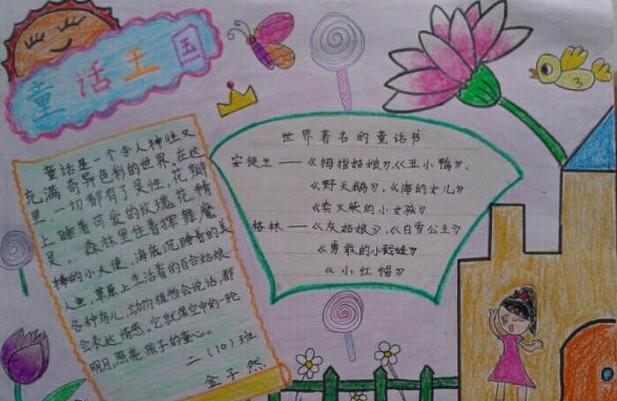 童话王国
童话是一个令人神往又
充满奇异色彩的世界,在这
里,一切都有了灵性,花瓣
上睡着可爱的玫瑰花精
灵,森林里住着挥舞魔
棒的小天使,海底沉睡着的美
人鱼,草原上生活着的百合姑娘
各种鸟儿,动物植物会说话,都
会表达情感。它就像空中的一轮
明月,照是孩子的童心。
二(10)班
金子然
世界著名的童话书
安徒生——《拇指姑娘》、《丑小鸭》、
《野天鹅》、《海的女儿》
《卖火柴的小女孩》
格林——《灰姑娘》、《白雪公主》
《勇敢的小裁缝》
《小红帽》